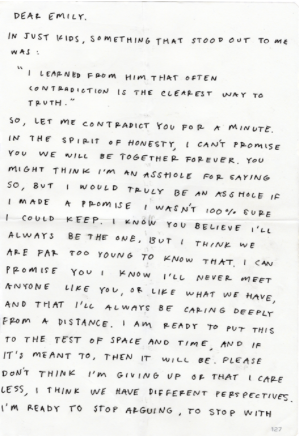 DEAR EMILY.
IN JUST KIDS, SOMETHING THAT STOOD OUT TO ME
WAS :
" I LEARNED FROM HIM THAT OFTEN
CONTRADICTION IS THE CLEAREST WAY TO
TRUTH."
SO, LET ME CONTRADICT YOU FOR A MINUTE.
IN THE SPIRIT OF HONESTY, I CAN'T PROMISE
YOU WE WILL BE TOGETHER FOREVER. YOU
MIGHT THINK I'M AN ASSHOLE FOR SAYING
SO, BUT I WOULD TRULY BE AN ASSHOLE IF
I MADE A PROMISE I WASN'T 100% SURE
I COULD KEEP. I KNOW YOU BELIEVE I'LL
ALWAYS BE THE ONE, BUT I THINK WE
ARE FAR TOO YOUNG TO KNOW THAT. I CAN
PROMISE YOU I KNOW I'LL NEVER MEET
ANYONE LIKE YOU, OR LIKE WHAT WE HAVE,
AND THAT I'LL ALWAYS BE CARING DEEPLY
FROM A DISTANCE. I AM READY TO PUT THIS
TO THE TEST OF SPACE AND TIME, AND IF
IT'S MEANT TO, THEN IT WILL BE. PLEASE
DON'T THINK I'M GIVING UP OR THAT I CARE
LESS, I THINK WE HAVE DIFFERENT PERSPECTIVES.
I'M READY TO STOP ARGUING, TO STOP WITH
127